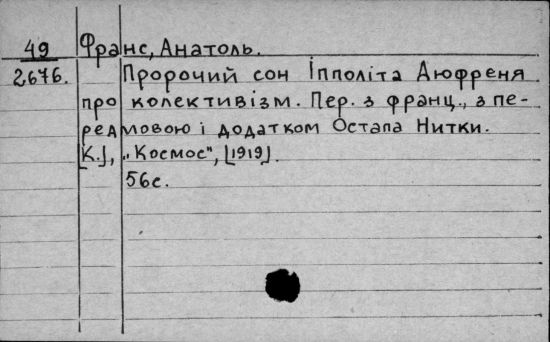 49 Франс, Анатоль.
2676. Пророчий сон Іпполіта Дюфреня
про колективізм. Пер. з франц., з пе-
редмовою і додатком Остапа Нитки.
[К.], „Космос", [1919].
56с.